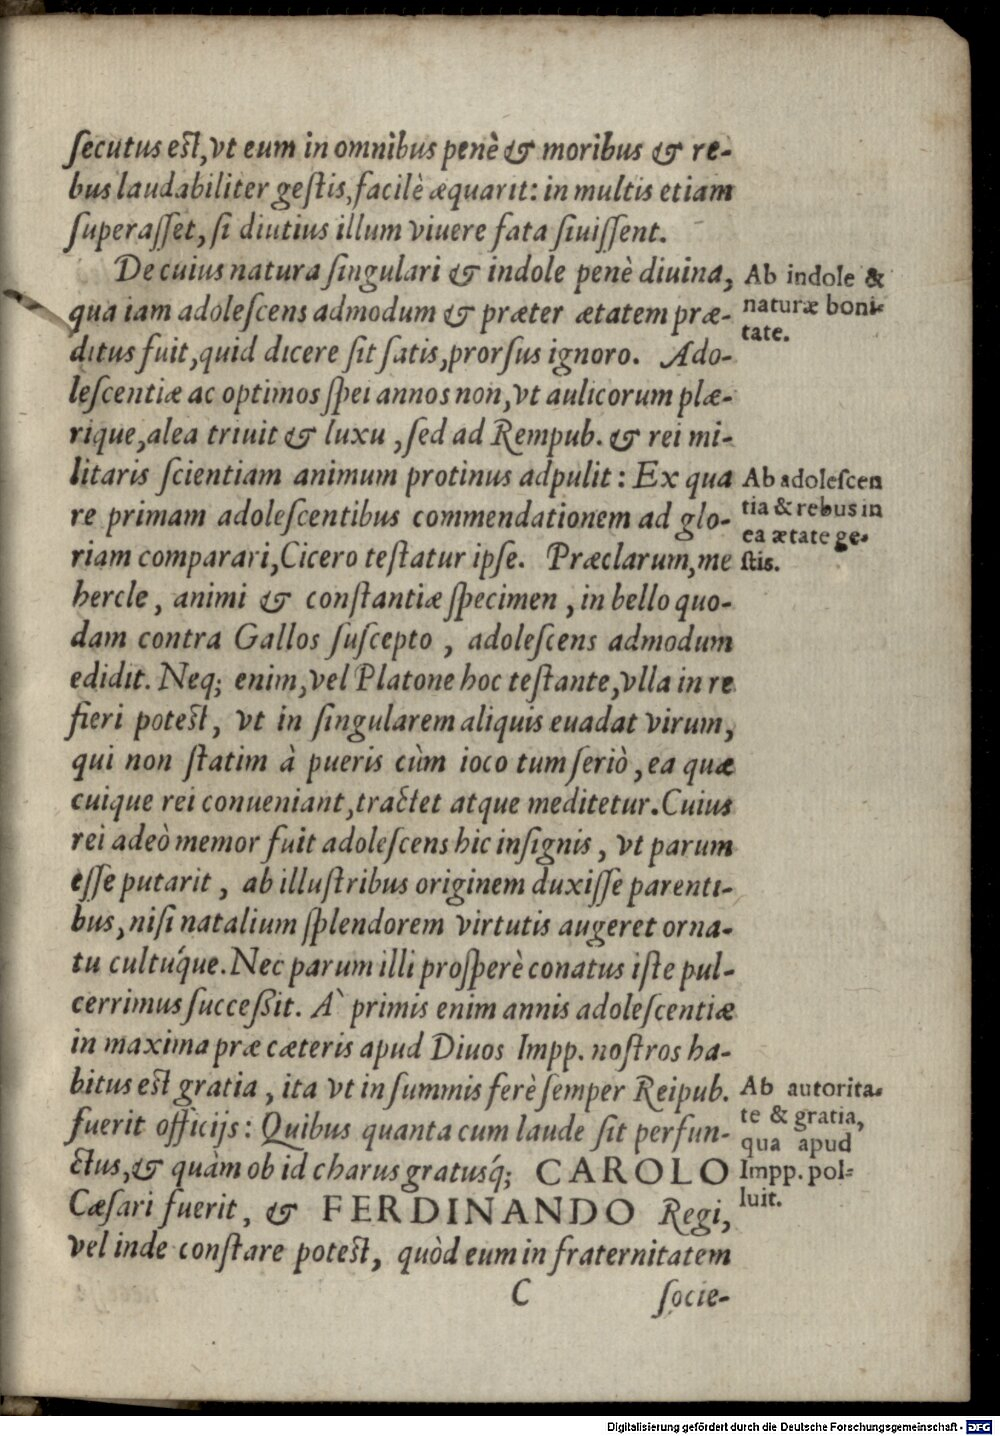 ſecutus eſt, vt eum in omnibus penè & moribus & re-
bus laudabiliter geſtis, facilè æquarit: in multis etiam
ſuperaſſet, ſi diutius illum viuere fata ſiuiſſent.
De cuius natura ſingulari & indole penè diuina,
qua iam adoleſcens admodum & præter ætatem præ-
ditus fuit, quid dicere ſit ſatis, prorſus ignoro. Ado-
leſcentiæ ac optimos ſpei annos non, vt aulicorum plæ-
rique, alea triuit & luxu, ſed ad Rempub. & rei mi-
litaris ſcientiam animum protinus adpulit: Ex qua
re primam adoleſcentibus commendationem ad glo-
riam comparari, Cicero teſtatur ipſe. Præclarum, me
hercle, animi & conſtantiæ ſpecimen, in bello quo-
dam contra Gallos ſuſcepto, adoleſcens admodum
edidit. Neq; enim, vel Platone hoc teſtante, vlla in re
fieri poteſt, vt in ſingularem aliquis euadat virum,
qui non ſtatim à pueris cùm ioco tum ſeriò, ea quæ
cuique rei conueniant, tractet atque meditetur. Cuius
rei adeò memor fuit adoleſcens hic inſignis, vt parum
eſſe putarit, ab illuſtribus originem duxiſſe parenti-
bus, niſi natalium ſplendorem virtutis augeret orna-
tu cultúque. Nec parum illi proſperè conatus iſte pul-
cerrimus ſucceßit. À primis enim annis adoleſcentiæ
in maxima præ cæteris apud Diuos Impp. noſtros ha-
bitus eſt gratia, ita vt in ſummis ferè ſemper Reipub.
fuerit officijs: Quibus quanta cum laude ſit perfun-
ctus, & quàm ob id charus gratusq́; CAROLO
Cæſari fuerit, & FERDINANDO Regi,
vel inde conſtare poteſt, quòd eum in fraternitatem
C ſocie-
Ab indole &
naturæ boni-
tate.
Ab adoleſcen
tia & rebus in
ea ætate ge-
ſtis.
Ab autorita-
te & gratia,
qua apud
Impp. pol-
luit.
Digitalisierung gefördert durch die Deutsche Forschungsgemeinschaft - DFG